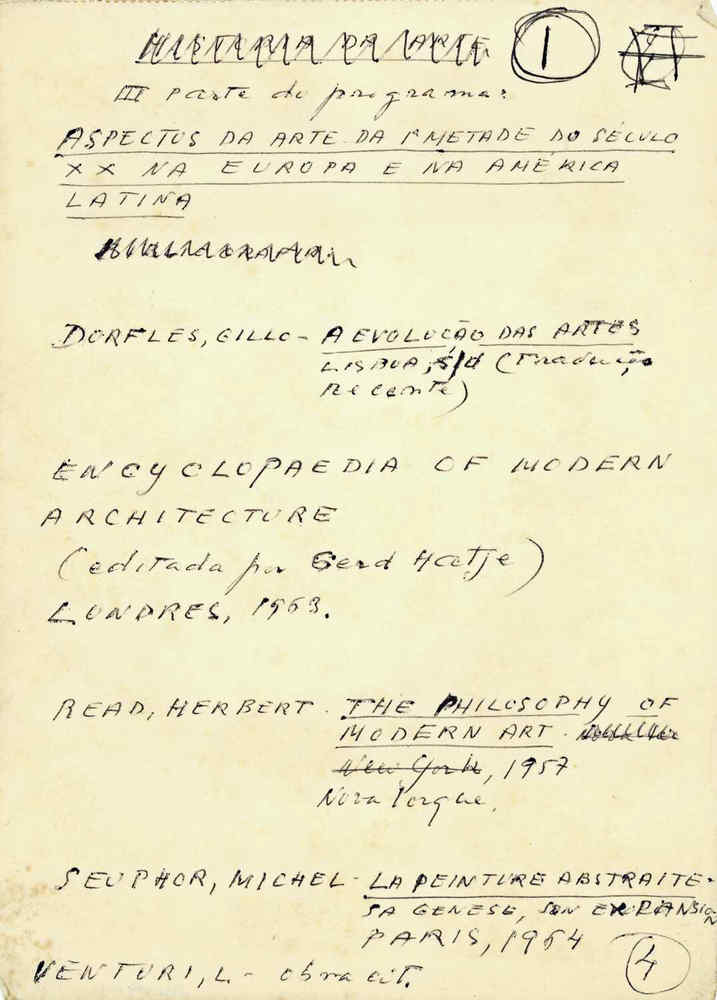 HISTÓRIA DA ARTE 1
III parte do programa:
ASPECTOS DA ARTE DA 1ª METADE DO SÉCULO
XX NA EUROPA E NA AMÉRICA
LATINA
DORFLES, GILLO - A EVOLUÇÃO DAS ARTES
LISBOA, s/d (tradução
recente)
ENCYCLOPAEDIA OF MODERN
ARCHITECTURE
(editada por Gerd Hatje)
LONDRES, 1963.
READ, HERBERT. THE PHILOSOPHY OF
MODERN ART.
New York, 1957
Nova Iorque,
SEUPHOR, MICHEL - LA PEINTURE ABSTRAITE -
SA GENESE, SON EXPANSION
PARIS, 1964
VENTURI, L - obra cit. 4